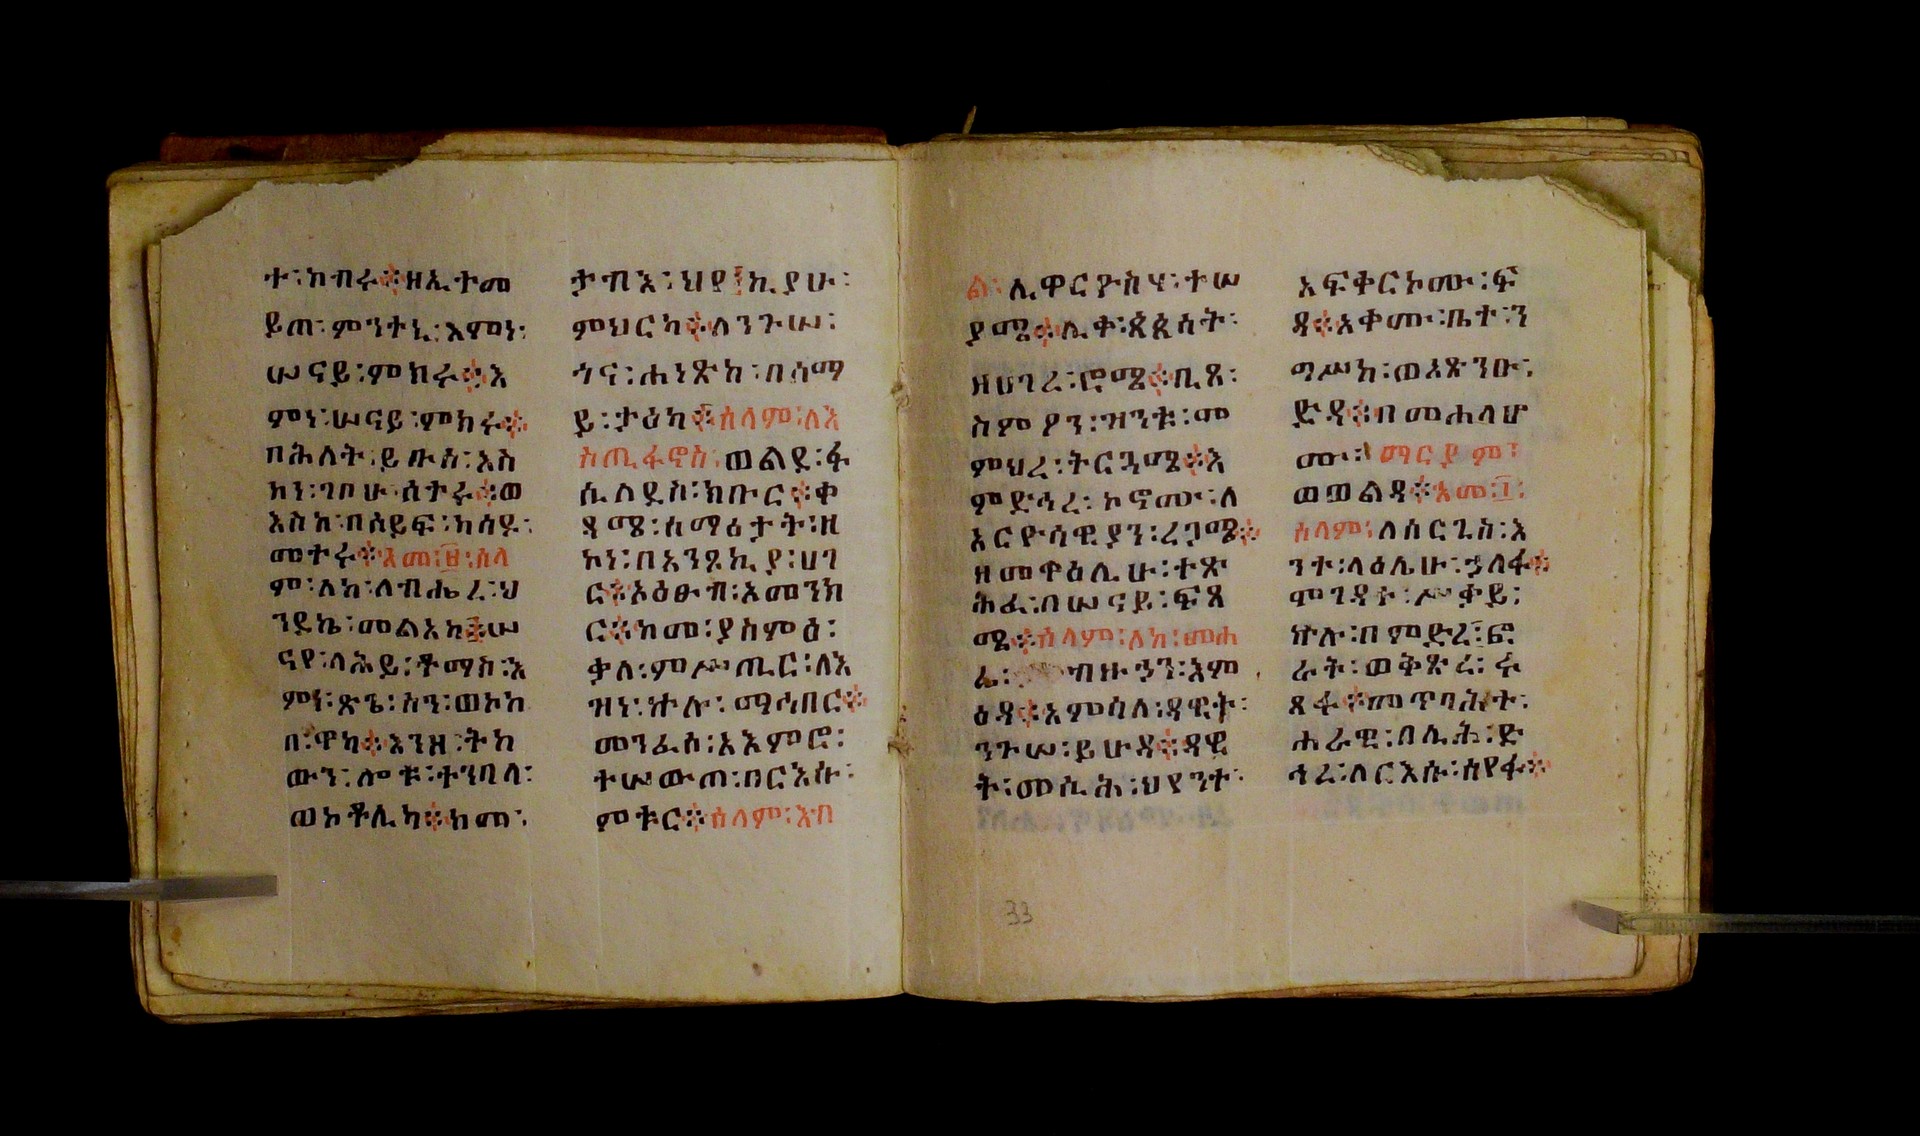 ተ፡ከብሩ፨ዘኢተመ
ይጠ፡ምንተኒ፡እምነ፡
ሠናይ፡ምክሩ፨እ
ምነ፡ሠናይ፡ምክሩ፨
በሕለት፡ይኩስ፡እስ
ከነ፡ገቦሁ፡ሰተሩ፨ወ
እስከ፡በሰይፍ፡ክሳዱ፡
መተሩ፨አመ፡፱፡ሰላ
ም፡ለከ፡ለብሔረ፡ህ
ንደኬ፡መልአከ፨ሠ
ናየ፡ላሕይ፡ቶማስ፡እ
ምነ፡ጽጌ፡ስን፡ወኮከ
በ፡ዋካ፨እንዘ፡ትከ
ውን፡ሎቱ፡ተንባለ፡
ወኦቶሊካ፨ከመ፡
ታብእ፡ህየ፡ኪያሁ፡
ምህርካ፨ለንጉሠ፡
ጎና፡ሐነጽከ፡በሰማ
ይ፡ታዕካ፨ሰላም፡ለእ
ስጢፋኖስ፡ወልደ፡ፋ
ሲለደስ፡ክቡር፨ቀ
ዳሜ፡ሰማዕታት፡ዘ
ኮነ፡በአንጾኪያ፡ሀገ
ር፨ኦዕፁብ፡አመንክ
ር፨ከመ፡ያስምዕ፡
ቃለ፡ምሥጢር፡ለእ
ዝነ፡ኵሉ፡ማኅበር፨
መንፈስ፡አእምሮ፡
ተሠውጠ፡በርእሱ፡
ምቱር፨ሰላም፡እብ
ል፡ሊዋርዮስሃ፡ተሠ
ያሜ፨ሊቀ፡ጳጳሳት፡
ዘሀገረ፡ሮሜ፨ቢጸ፡
ስምዖን፡ዝንቱ፡መ
ምህረ፡ትርጓሜ፨እ
ምድኅረ፡ኮኖሙ፡ለ
አርዮሳዊያን፡ረጋሜ፨
ዘመዋዕሊሁ፡ተጽ
ሕፈ፡በሠናይ፡ፍጻ
ሜ፨ሰላም፡ለከ፡መሐ
ሬ፡ብዙኃን፡እም
ዕዳ፨አምሳለ፡ዳዊት፡
ንጉሠ፡ይሁዳ፨ዳዊ
ት፡መሲሕ፡ህየንተ፡
አፍቀርኮሙ፡ፍ
ዳ፨አቀሙ፡ቤተ፡ን
ግሥከ፡ወአጽንዑ፡
ድዳ፨በመሐላሆ
ሙ፡ማርያም፡
ወወልዳ፨አመ፡፲፡
ሰላም፡ለሰርጊስ፡እ
ንተ፡ላዕሌሁ፡ኃለፋ፨
ሞገዳተ፡ሥቃይ፡
ኵሉ፡በምድረ፡ፎ
ራት፡ወቅጽረ፡ሩ
ጻፋ፨መጥባሕት፡
ሐራዊ፡በሊሕ፡ድ
ኅረ፡ለርእሱ፡ሰየፋ፨
33